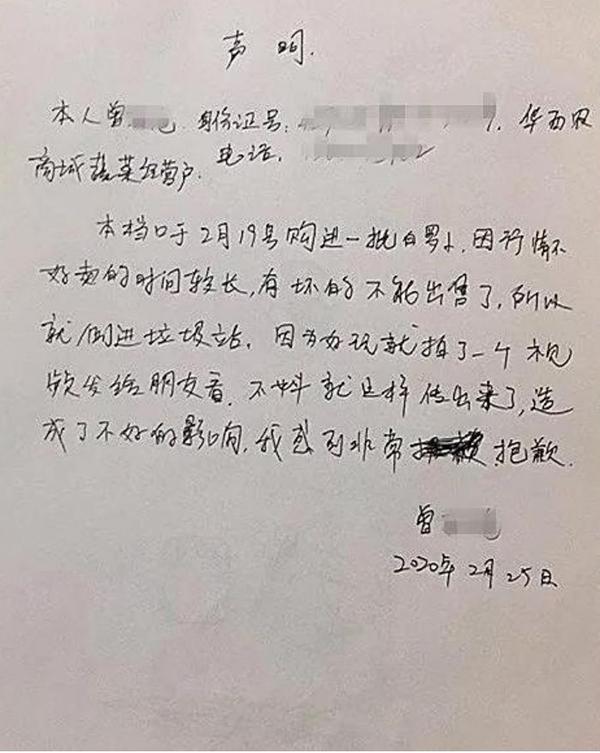 声明.
本人曾 身份证号: 华西农
商城蔬菜经营户. 电话.
本档口于2月19号购进一批白罗卜.因行情不
好卖的时间较长,有坏的不能出售了,所以
就倒进垃圾站.因为好玩就拍了一个视
频发给朋友看.不料就这样传出来了,造
成了不好的影响.我感到非常 抱歉.
曾
2020年2月25日